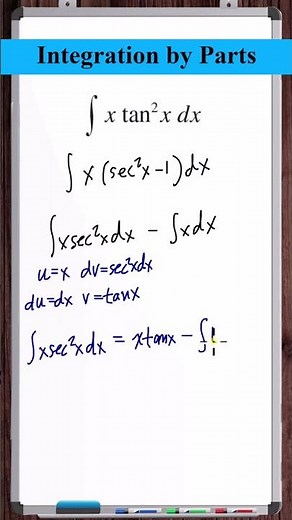 Integration by Parts
∫ x tan²x dx
∫ x (sec²x-1) dx
∫xsec²xdx - ∫xdx
u=x dv=sec²xdx
du=dx v=tanx
∫xsec²xdx = xtanx - ∫